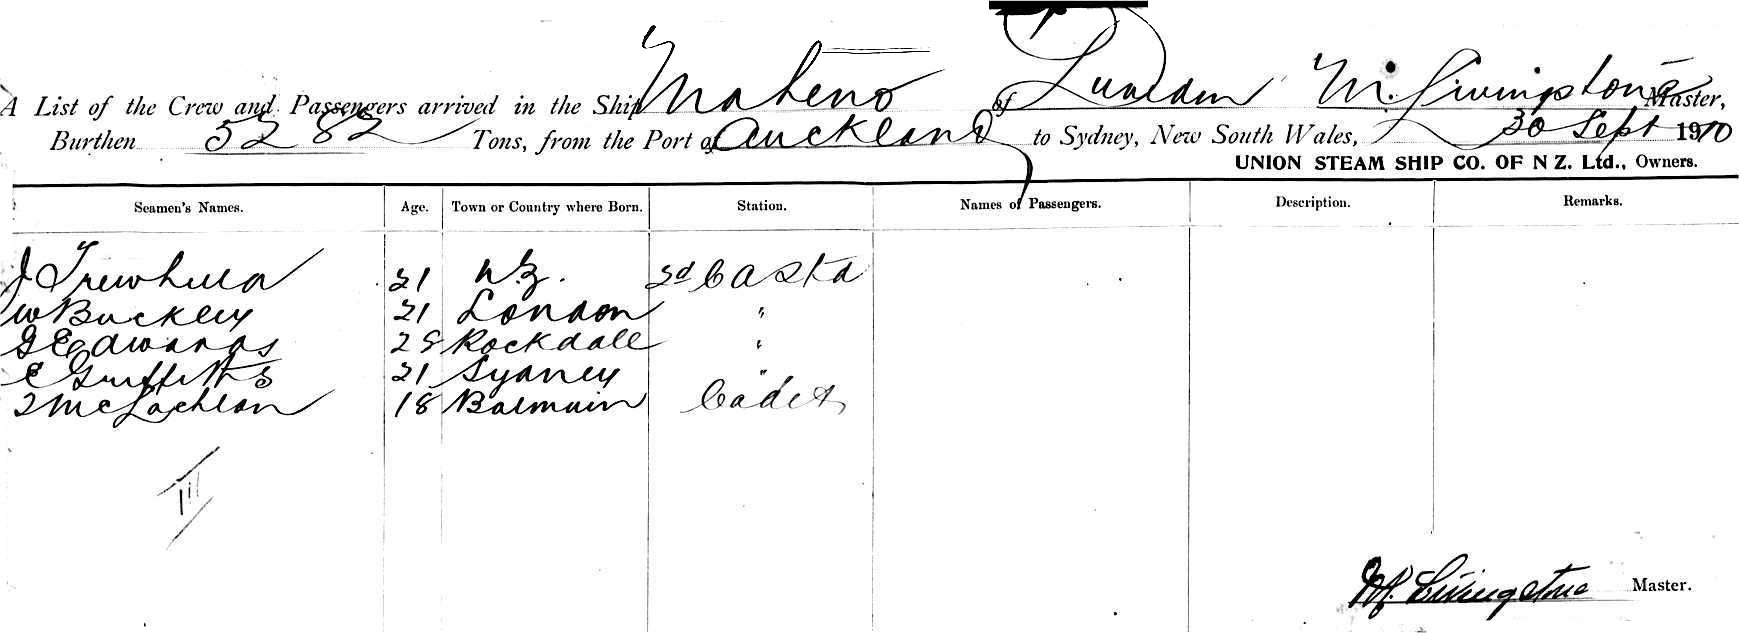 A List of the Crew and Passengers arrived in the Ship Maheno of Dunedin M. Livingstone Master,
Burthen 5282 Tons, from the Port of Auckland to Sydney, New South Wales, 30 Sept 1910
UNION STEAM SHIP CO. OF N Z. Ltd., Owners.
Seamen's Names. Age. Town or Country where Born. Station. Names of Passengers. Description. Remarks.
J Trewhella 21 N.Z. 2d Casta
W Buckley 21 London "
G Edwards 28 Rockdale "
E Griffiths 21 Sydney "
McLachlan 18 Balmain Cadet
III
M. Livingstone Master.